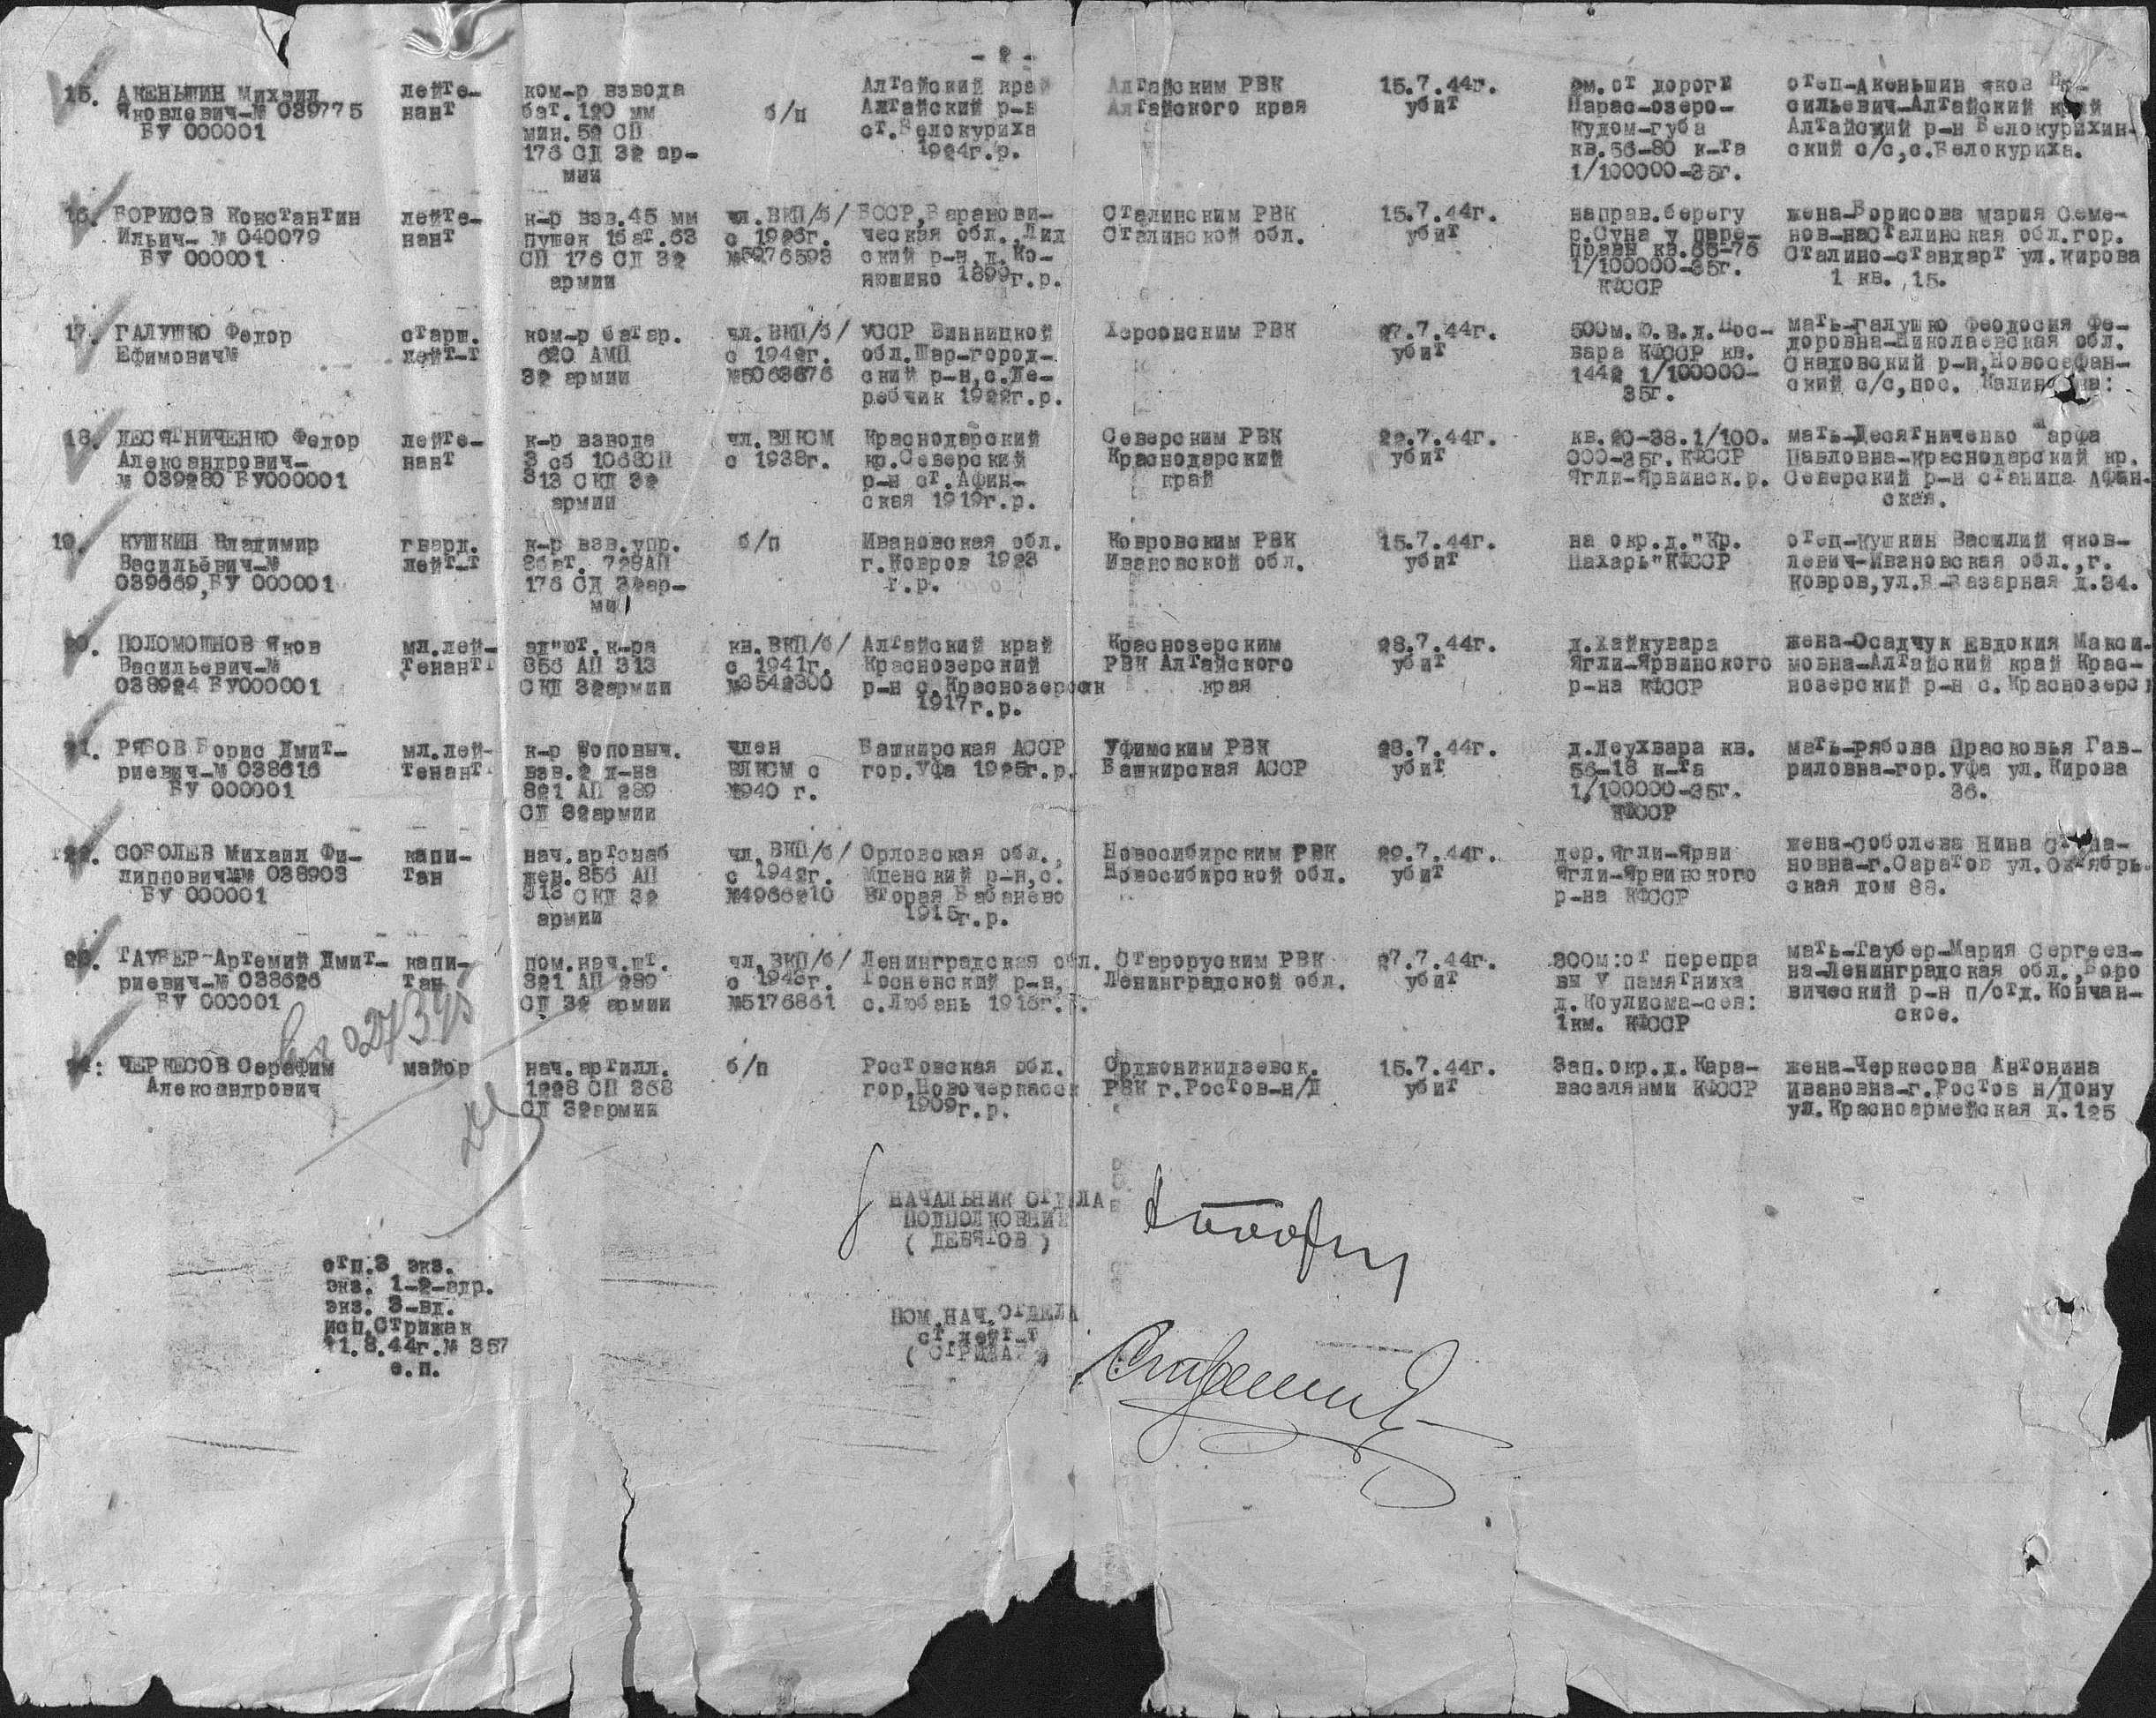 - 2 -
15. АКЕНЬШИН Михаил Яковлевич-№ 039775 БУ 000001
лейте-нант
ком-р взвода бат. 120 мм мин. 52 СП 176 СД 32 ар-мии
б/п
Алтайский край Алтайский р-н ст.Белокуриха 1924г.р.
Алтайским РВК Алтайского края
15.7.44г. убит
2м.от дороги Парас-озеро-Кудом-губа кв.56-80 к-та 1/100000-35г.
отец-Акеньшин Яков Ва-сильевич-Алтайский край Алтайский р-н Белокурихин-ский с/с,с.Белокуриха.
16. БОРИСОВ Константин Ильич- № 040079 БУ 000001
лейте-нант
к-р взв.45 мм пушек 1бат.63 СП 176 СД 32 армии
чл.ВКП/б/ с 1926г. №5276593
БССР,Баранови-ческая обл.,Лид ский р-н,д.Ко-няшино 1899г.р.
Сталинским РВК Сталинской обл.
15.7.44г. убит
направ.берегу р.Суна у пере-правы кв.66-76 1/100000-35г. КФССР
жена-Борисова мария Семе-нов-наСталинская обл.гор. Сталино-стандарт ул.Кирова 1 кв. 15.
17. ГАЛУШКО Федор Ефимович№
старш. лейт-т
ком-р батар. 620 АМП 32 армии
чл.ВКП/б/ с 1942г. №5063676
УССР Винницкой обл.Шар-город-ский р-н,с.Де-ребчик 1922г.р.
Херсонским РВК
27.7.44г. убит
500м.Ю.В.д.Пос-вара КФССР кв. 1442 1/100000-35г.
мать-галушко феодосия Фе-доровна-Николаевская обл. Скадовский р-н,Новосефан-ский с/с,пос. Калиновка:
18. ДЕСЯТНИЧЕНКО Федор Александрович-№ 039280 БУ000001
лейте-нант
к-р взвода 3 сб 1068СП 313 СКД 32 армии
чл.ВЛКСМ с 1938г.
Краснодарский кр.Северский р-н ст.Афин-ская 1919г.р.
Северским РВК Краснодарский край
22.7.44г. убит
кв.20-38.1/100.000-35г.КФССР Ягли-Ярвинск.р.
мать-Десятниченко Марфа Павловна-краснодарский кр. Северский р-н станица Афин-ская.
19. КУШКИН Владимир Васильевич-№ 039669,БУ 000001
гвард. лейт-т
к-р взв.упр. 2бат. 728АП 176 СД 32ар-ми
б/п
Ивановская обл. г.Ковров 1923 г.р.
Ковровским РВК Ивановской обл.
15.7.44г. убит
на окр.д."Кр. Пахарь"КФССР
отец-Кушкин Василий яков-левич-Ивановская обл.,г. Ковров,ул.В-Базарная д.34.
20. ПОЛОМОШНОВ Яков Васильевич-№ 038924 БУ000001
мл.лей-тенант
ад"ют.к-ра 856 АП 313 СКД 32армии
кн.ВКП/б/ с 1941г. №3542300
Алтайский край Краснозерский р-н с.Краснозерск 1917г.р.
Краснозерским РВК Алтайского края
28.7.44г. убит
д.Хайкувара Ягли-Ярвинского р-на КФССР
жена-Осадчук Евдокия Макси-мовна-Алтайский край Крас-нозерский р-н с.Краснозерс
21. РЯБОВ Борис Дмит-риевич-№ 038616 БУ 000001
мл.лей-тенант
к-р топовыч. взв.2 д-на 821 АП 289 СД 32армии
член ВЛКСМ с 1940 г.
Башкирская АССР гор.Уфа 1925г.р.
Уфимским РВК Башкирская АССР
28.7.44г. убит
д.Леухвара кв. 56-18 к-та 1/100000-35г. КФССР
мать-рябова Прасковья Гав-риловна-гор.уфа ул.Кирова 36.
22. СОБОЛЕВ Михаил Фи-липпович№ 038903 БУ 000001
капи-тан
нач.артснаб жен.856 АП 313 СКД 32 армии
чл.ВКП/б/ с 1942г. №4966210
Орловская обл., Мценский р-н,с. Вторая Бабанево 1915г.р.
Новосибирским РВК Новосибирской обл.
29.7.44г. убит
дер.Ягли-Ярви Ягли-Ярвинского р-на КФССР
жена-соболева Нина Степа-новна-г.Саратов ул.Октябрь-ская дом 88.
23. ТАУБЕР-Артемий Дмит-риевич-№ 038626 БУ 000001
капи-тан
пом.нач.шт. 821 АП 289 СД 32 армии
чл.ВКП/б/ с 1943г. №5176861
Ленинградская обл. Тосненский р-н, с.Любань 1915г.р.
Старорусским РВК Ленинградской обл.
27.7.44г. убит
300м:от перепра вы у памятника д.Коулисма-сев: 1км. КФССР
мать-Таубер-Мария Сергеев-на-Ленинградская обл.,Боро вический р-н п/отд.Кончан-ское.
24: ЧЕРКЕСОВ Серафим Александрович
майор
нач.артилл. 1228 СП 368 СД 32армии
б/п
Ростовская обл. гор.Новочеркасск 1909г.р.
Орджоникидзевск. РВК г.Ростов-н/Д
15.7.44г. убит
Зап.окр.д.Кара-васалянми КФССР
жена-Черкесова Антонина Ивановна-г.Ростов н/Дону ул.Красноармейская д.125
НАЧАЛЬНИК ОТДЕЛА
ПОДПОЛКОВНИК
( ДЕВЯТОВ )
отп.3 экз.
экз. 1-2-адр.
экз. 3-вд.
исп.Стрижак
21.8.44г.№ 357
е.п.
ПОМ.НАЧ.ОТДЕЛА
ст.лейт-т
( СТРИЖАК )